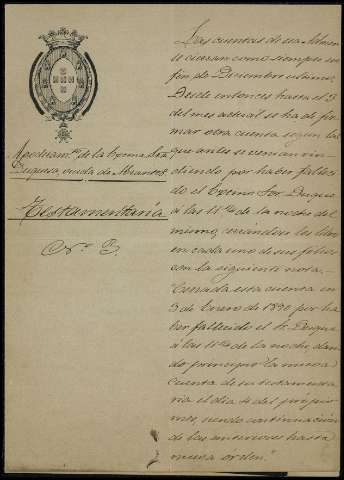 Apoderam.to de la Excma. Sra.
Duquesa, viuda de Abrantes.
Testamentaría
N.º 3.
Las cuentas de esa Admon
se cierran como siempre en
fin de Diciembre último.
Desde entonces hasta el 3
del mes actual se ha de for-
mar otra cuenta segun las
que antes se venian rin-
diendo por haber falleci-
do el Excmo Sor. Duque
á las 11 1/2 de la noche del
mismo, cerrándose los libros
en cada uno de sus folios
con la siguiente nota:
"Cerrada esta cuenta en
3 de Enero de 1890 por ha-
ber fallecido el Sr. Duque
á las 11 1/2 de la noche, dan-
do principio la nueva
cuenta de su testamenta-
ria el dia 4 del propio
mes, siendo continuacion
de las anteriores hasta
nueva orden."